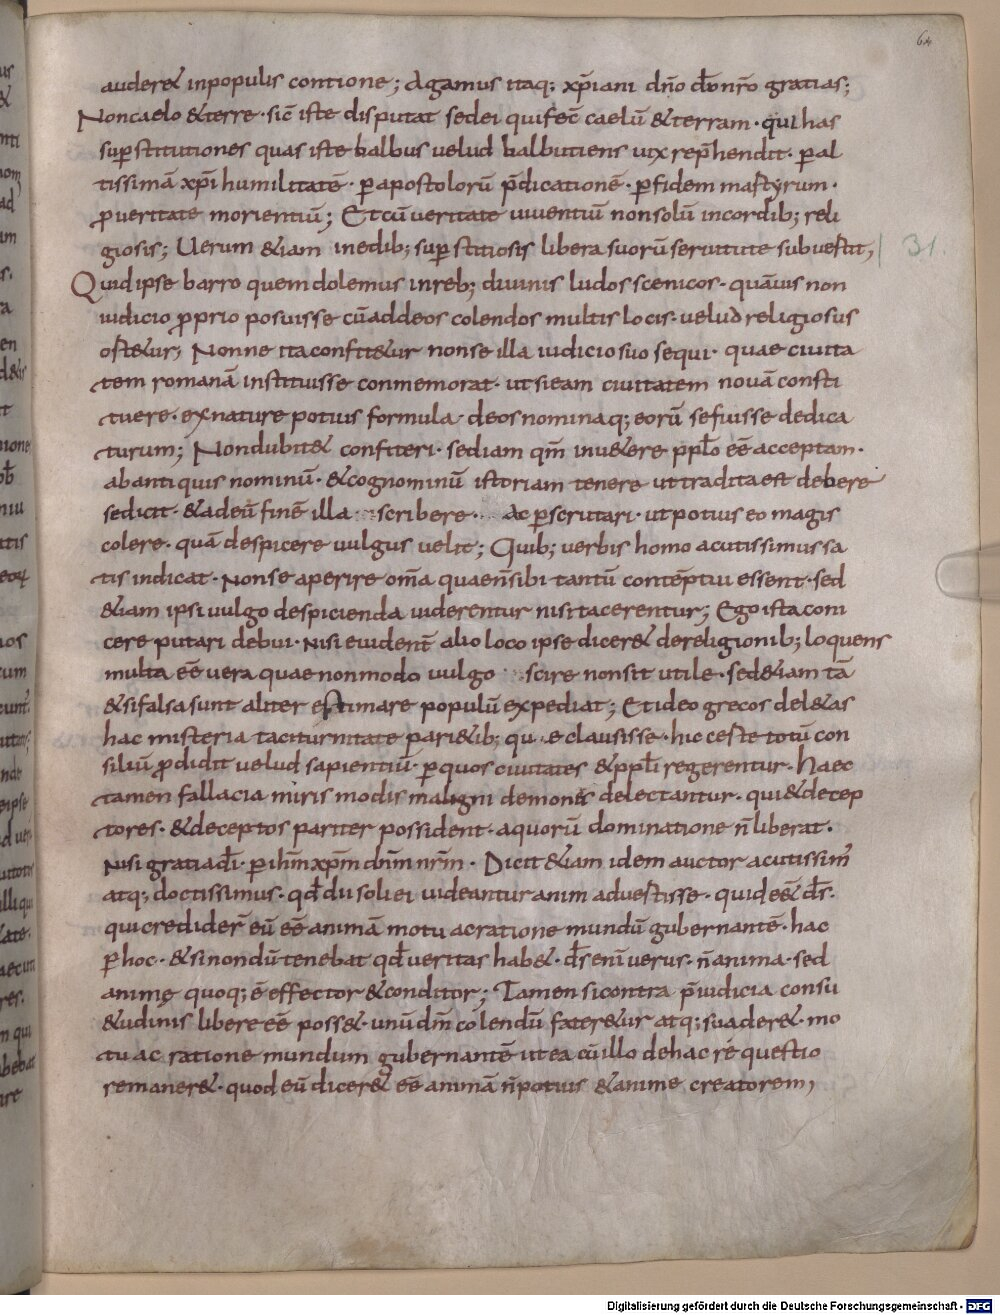 64
auder& inpopulis contione; Agamus itaq; xp̄iani dn̄o dō nr̄o gratias;
Noncaelo &terre· sic̄ iste disputat sedei quifec̄ caelū &terram· qui has
sup̄stitutiones quas iste balbus velud balbutiens uix rep̄hendit· p̄ al
tissimā xp̄i humilitatē· p̄ apostolorū p̄dicationē· p̄ fidem mastyrum·
p̄ueritate morientiū; Etcū ueritate uiuentiū nonsolū incordib; reli
giosis; Uerum &iam inedib; sup̄stitiosis libera suorū seruitute subuestit,
31.
Quidipse barro quemdolemus inreb; diuinis ludos scenicos· quāuis non
iudicio p̄prio posuisse cū addeos colendos multis locis· uelud religiosus
ost&ur; Nonne itaconfit&ur nonse illa iudicio suo sequi· quae ciuita
tem romanā instituisse conmemorat· utsieam ciuitatem nouā consti
tuere· exnature potius formula· deos nominaq; eorū sefuisse dedica
turum; Nondubit& confiteri· sediam qm̄ inu&ere pplo eē acceptam·
abantiquis nominū· &cognominū istoriam tenere uttradita est debere
sedicit· &adeū finē illa scribere· ac p̄scrutari· utpotius eo magis
colere· quā despicere uulgus uelit; Quib; uerbis homo acutissimus sa
tis indicat· Nonse aperire om̄a quaen̄sibi tantū contēptui essent· sed
&iam ipsi uulgo despicienda uiderentur nisi tacerentur; Ego ista coni
cere putari debui· Nisi euident̄ alio loco ipse dicer& dereligionib; loquens
multa eē uera quae nonmodo uulgo scire nonsit utile· sed&iam tā
&sifalsa sunt aliter estimare populū expediat; Etideo grecos del&as
hac misteria taciturnitate pari&ib; qu e clausisse· hic ceste totū con
siliū p̄didit uelud sapientiū· p̄ quos ciuitates &ppli regerentur· Haec
tamen fallacia miris modis maligni demones delectantur· qui&decep
tores· &deceptos pariter possident· aquorū dominatione n̄ liberat·
Nisi gratiadī· p̄ ihm̄ xpm̄ dnm̄ nrm̄· Dicit &iam idem auctor acutissim̄
atq; doctissimus· qd̄ dii soli ei uideantur anim aduestisse· quid eē ds̄·
qui credider̄ eū eē animā motu ac ratione mundū gubernantē· hac
p̄ hoc· &sinondū tenebat qd̄ ueritas hab&· ds̄ enī uerus· n̄ anima· sed
animę quoq; ē effector &conditor; Tamen sicontra p̄iudicia consu
&udinis libere eē poss&· unū dm̄ colendū fater&ur atq; suader&· mo
tu ac ratione mundum gubernantē ut ea cū illo dehac re questio
remaner&· quod eū dicer& eē animā n̄ potius &anime creatorem;
Digitalisierung gefördert durch die Deutsche Forschungsgemeinschaft - DFG